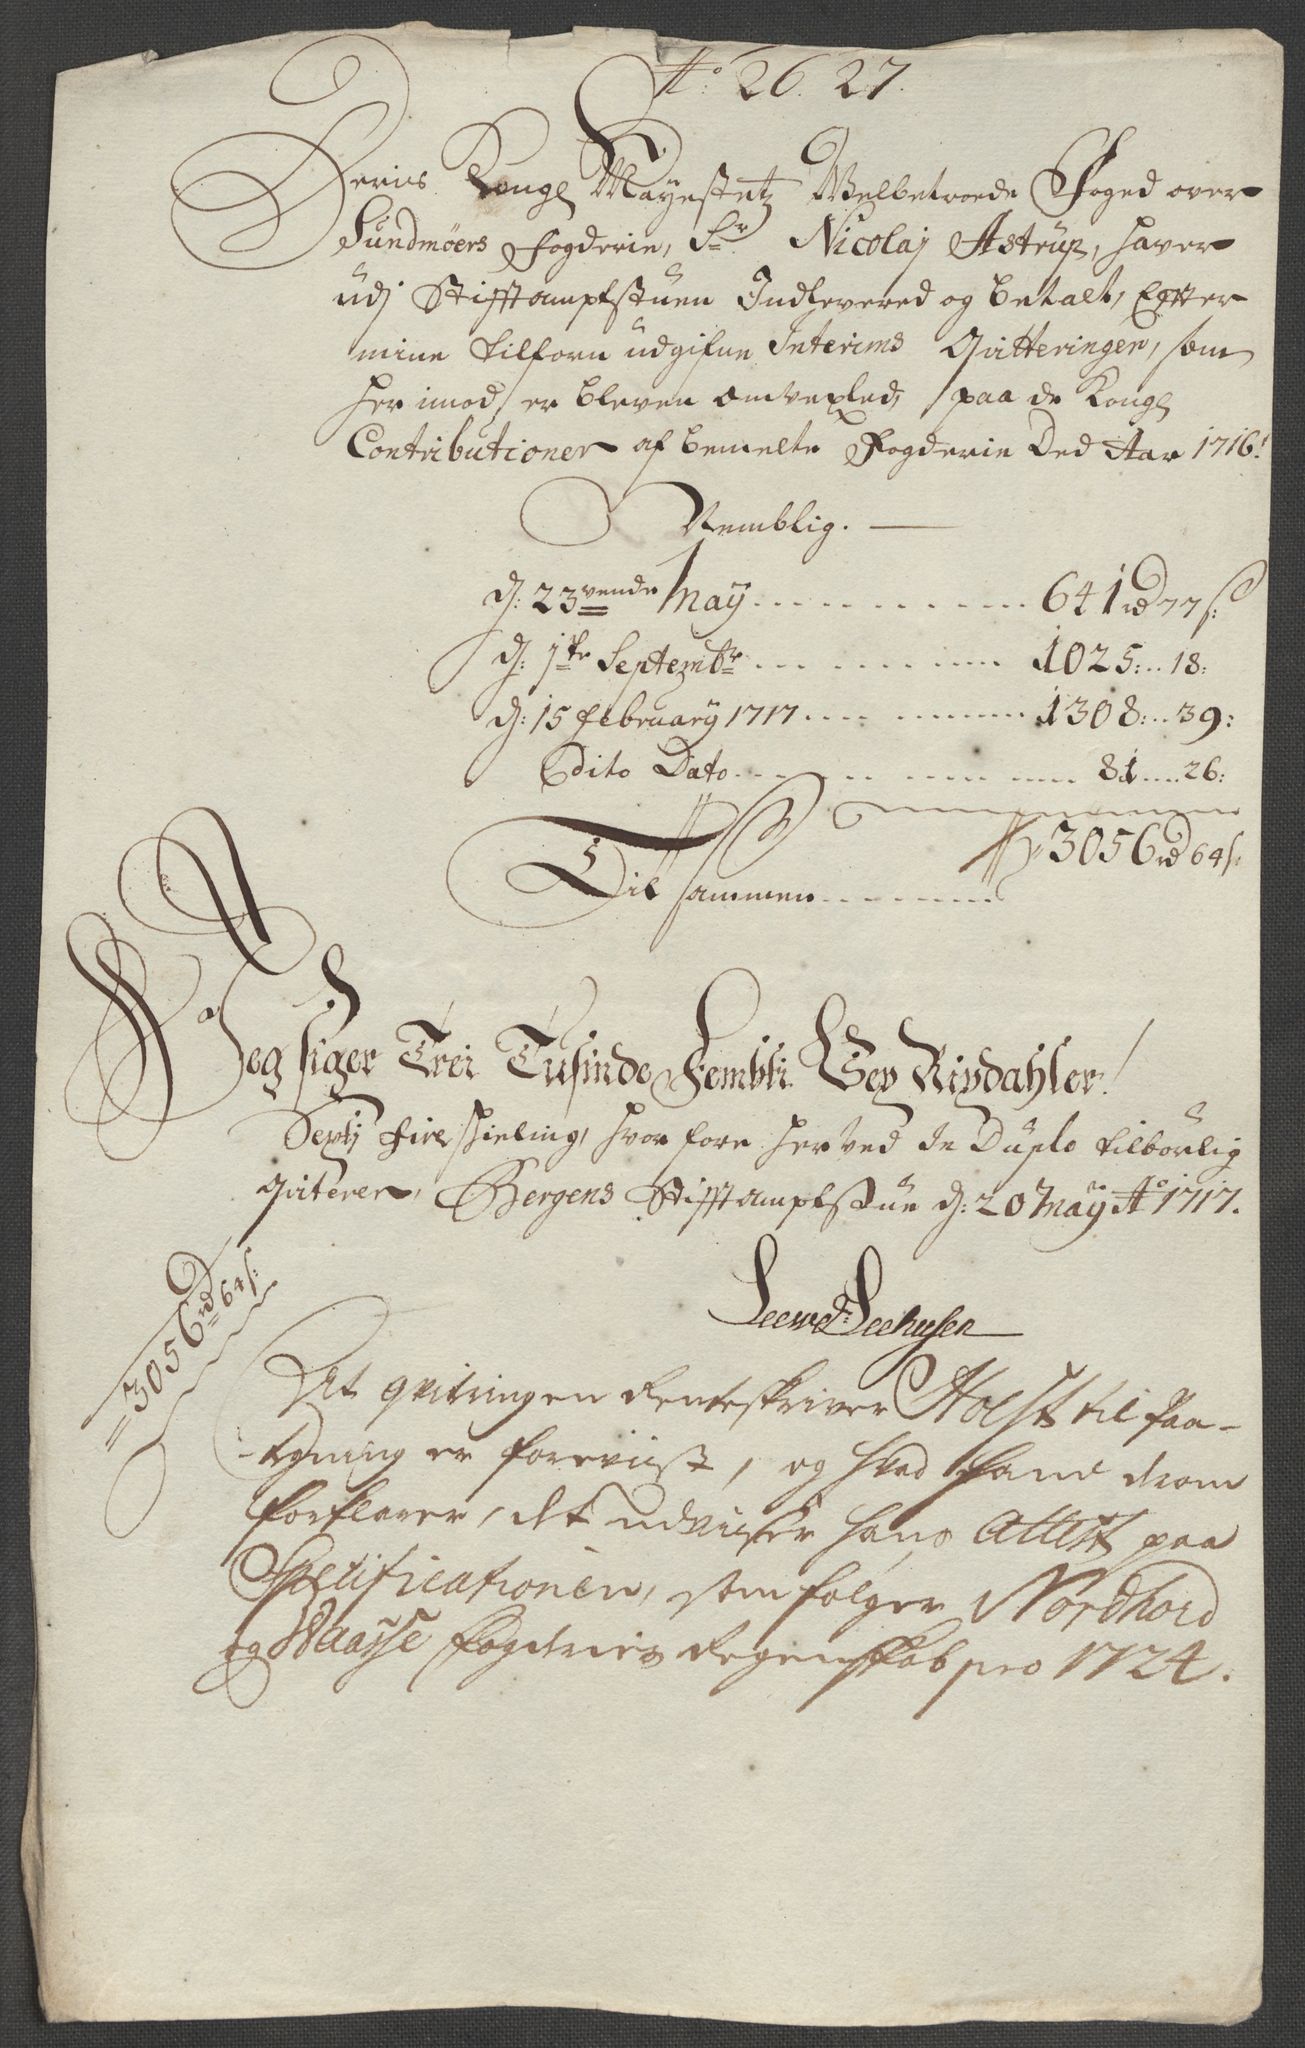 No: 26. 27.
Deris Kongl Mayestetz Velbetroede Foged over
Sundmöers Fogderie, Sr Nicolaj Astrup, haver
udj Stifftamptstuen Indlevered og betalt, Eftter
mine tilforn udgifne Interims Qvitteringer, som
her imod er bleven omvexled, paa de Kongl
Contributioner af bemelte Fogderie Ded Aar 1716:
Nemblig.
d: 23vende May 641 rd 77 s:
d: 1ste Septembr 1025: 18:
d: 15 February 1717 1308: 39:
Dito Dato 81 26:
3056 rd 64 s:
Tilsammen
Jeg siger Trei Tusinde Fembti Sex Rixdahler!
Sextj fire schieling, hvor fore her ved In Duplo tilbörlig
qviterer, Bergens Stifftamptstue d: 20 May Ao 1717.
3056 rd 64 s:
Leewd: Leehusen
At qvitringen Renteskriver Holst til paa-
-tegning er foreviist, og hvad hand derom
forklarer, det udviiser hans Attest paa
Specificationen, som følger Nordhord
og Waasse fogderies Regenskab pro 1724.